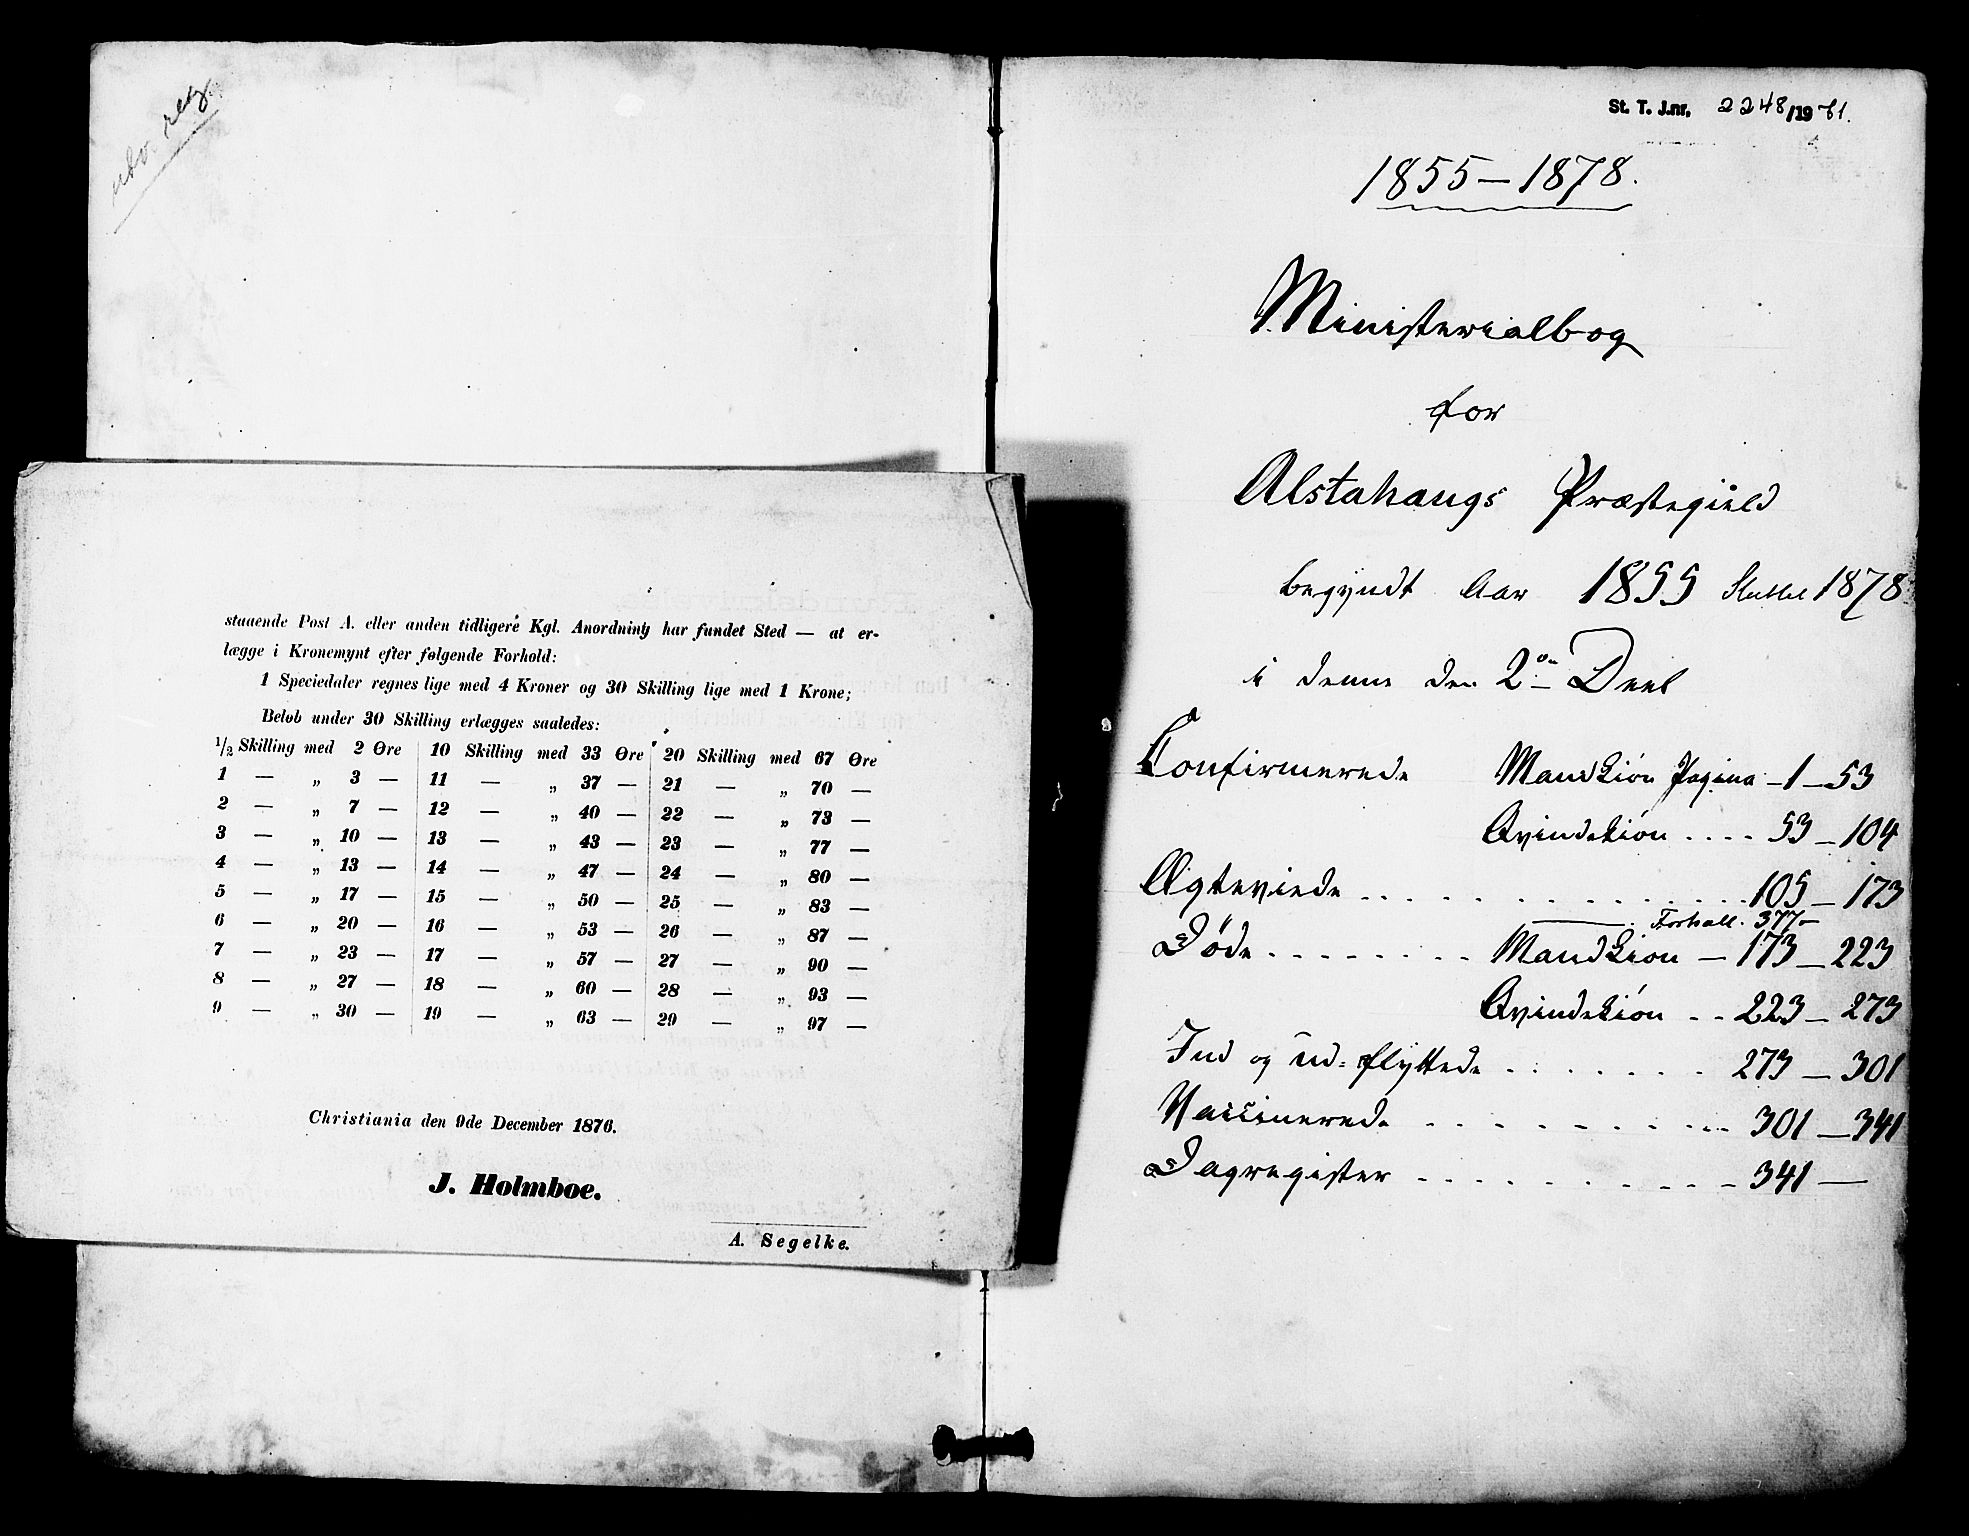 reg.
staaende Post A. eller anden tidligere Kgl. Anordning har fundet Sted — at er-
lægge i Kronemynt efter følgende Forhold:
1 Speciedaler regnes lige med 4 Kroner og 30 Skilling lige med 1 Krone;
Beløb under 30 Skilling erlægges saaledes:
1/2 Skilling med 2 Øre 10 Skilling med 33 Øre 20 Skilling med 67 Øre
1 — „ 3 — 11 — „ 37 — 21 — „ 70 —
2 — „ 7 — 12 — „ 40 — 22 — „ 73 —
3 — „ 10 — 13 — „ 43 — 23 — „ 77 —
4 — „ 13 — 14 — „ 47 — 24 — „ 80 —
5 — „ 17 — 15 — „ 50 — 25 — „ 83 —
6 — „ 20 — 16 — „ 53 — 26 — „ 87 —
7 — „ 23 — 17 — „ 57 — 27 — „ 90 —
8 — „ 27 — 18 — „ 60 — 28 — „ 93 —
9 — „ 30 — 19 — „ 63 — 29 — „ 97 —
Christiania den 9de December 1876.
J. Holmboe.
A. Segelke.
St. T. J.nr. 2248/1961.
1855–1878.
Ministerialbog
for
Alstahaugs Præstegield
begyndt Aar 1855 Sluttet 1878.
i denne den 2den Deel
Confirmerede Mandkiøn Pagina – 1 – 53
Qvindekiøn .... 53 – 104
Ægteviede ........ 105 – 173
Forts. 377 –
Døde ........ Mandkiøn – 173 – 223
Qvindekiøn .. 223 – 273
Ind og ud-flyttede ....... 273 – 301
Vaccinerede ......... 301 – 341
Dagregister .......... 341 –